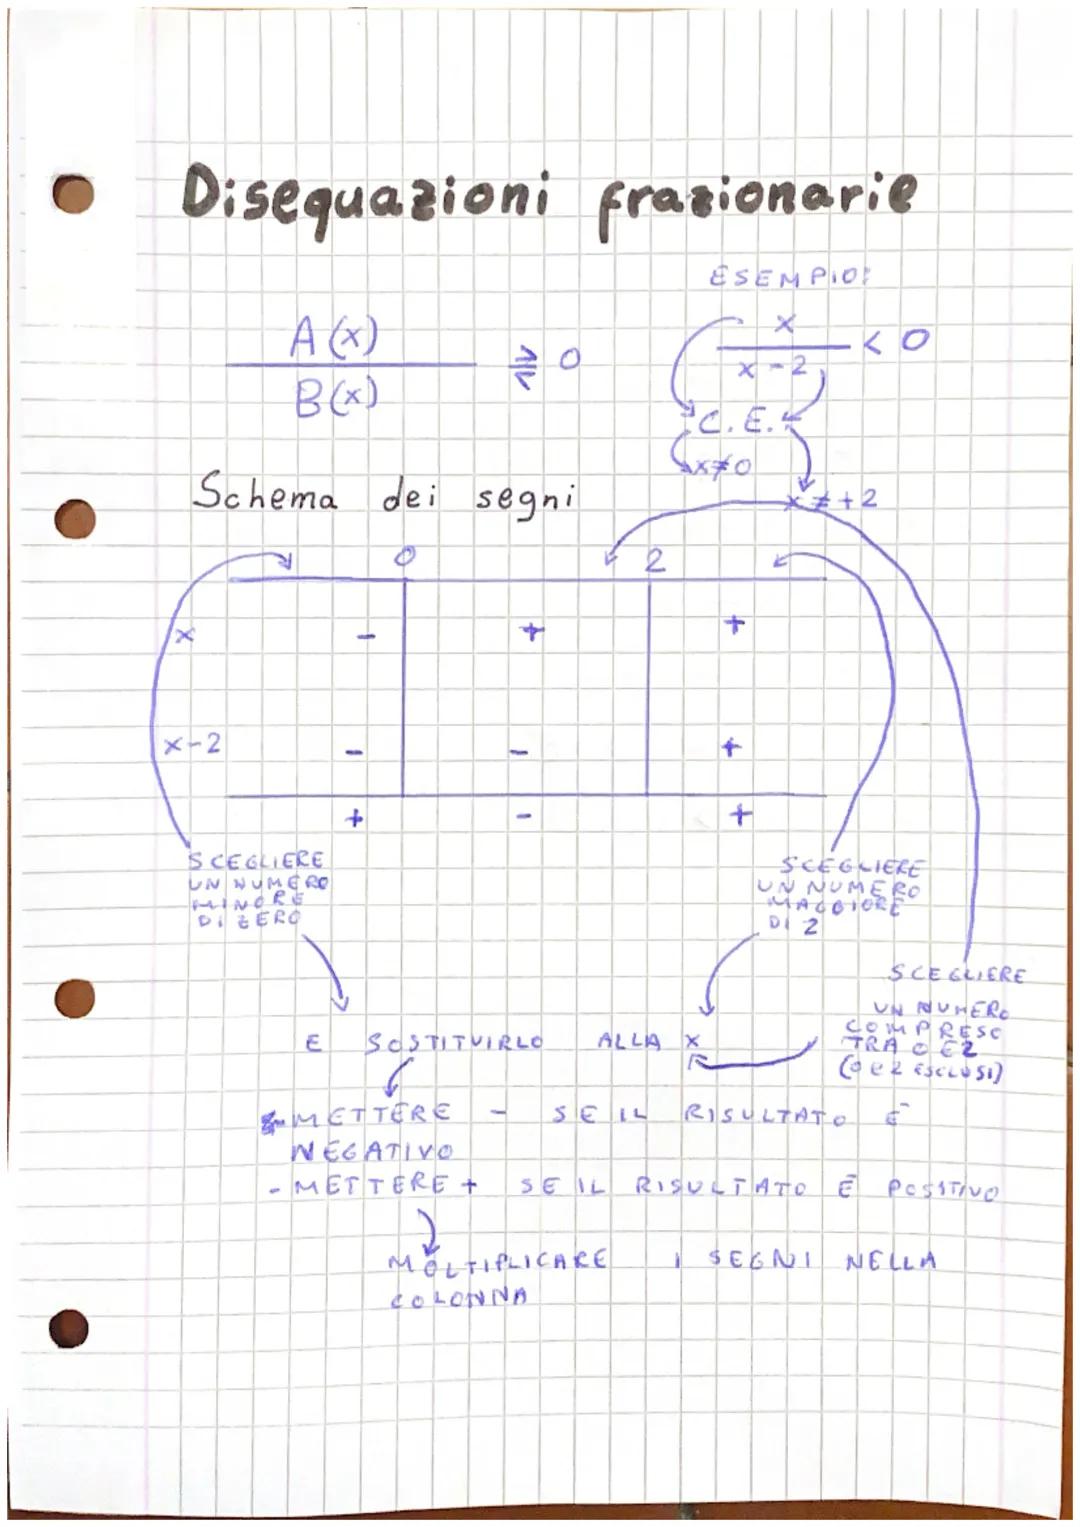 Disequazioni frazionarie
ESEMPIO:
A(x)
B(x)
⋛ 0
x
x-2
< 0
C.E.:
x≠0
x≠+2
Schema dei segni
0 2
x - + +
x-2 - - +
+ - +
SCEGLIERE
UN NUMERO
MINORE
DI ZERO
SCEGLIERE
UN NUMERO
MAGGIORE
DI 2
SCEGLIERE
UN NUMERO
COMPRESO
TRA 0 E 2
(0 e 2 ESCLUSI)
E SOSTITUIRLO ALLA x
- METTERE - SE IL RISULTATO É
NEGATIVO
- METTERE + SE IL RISULTATO É POSITIVO
MOLTIPLICARE I SEGNI NELLA
COLONNA